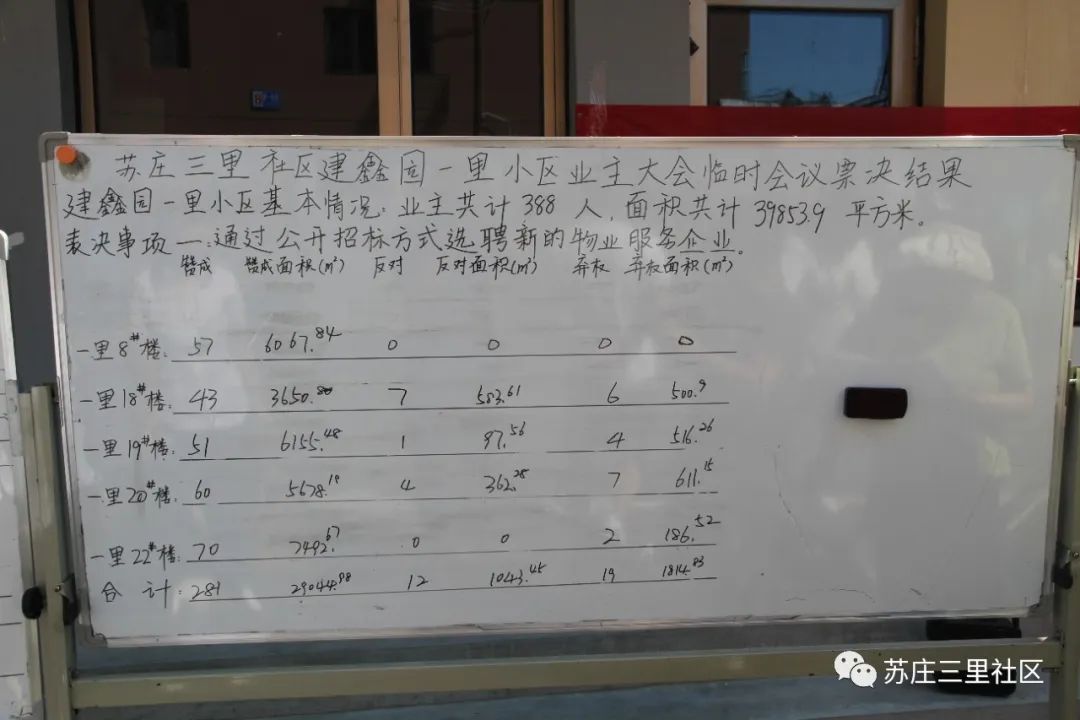 苏庄三里社区建鑫园一里小区业主大会临时会议票决结果
建鑫园一里小区基本情况：业主共计388人，面积共计39853.9平方米。
表决事项一：通过公开招标方式选聘新的物业服务企业。
赞成 赞成面积(m²) 反对 反对面积(m²) 弃权 弃权面积(m²)
一里8#楼：57 6067.84 0 0 0 0
一里18#楼：43 3650.80 7 583.61 6 500.9
一里19#楼：51 6155.48 1 97.56 4 516.26
一里20#楼：60 5678.19 4 362.28 7 611.15
一里22#楼：70 7492.67 0 0 2 186.52
合计：281 29044.98 12 1043.45 19 1814.83
苏庄三里社区